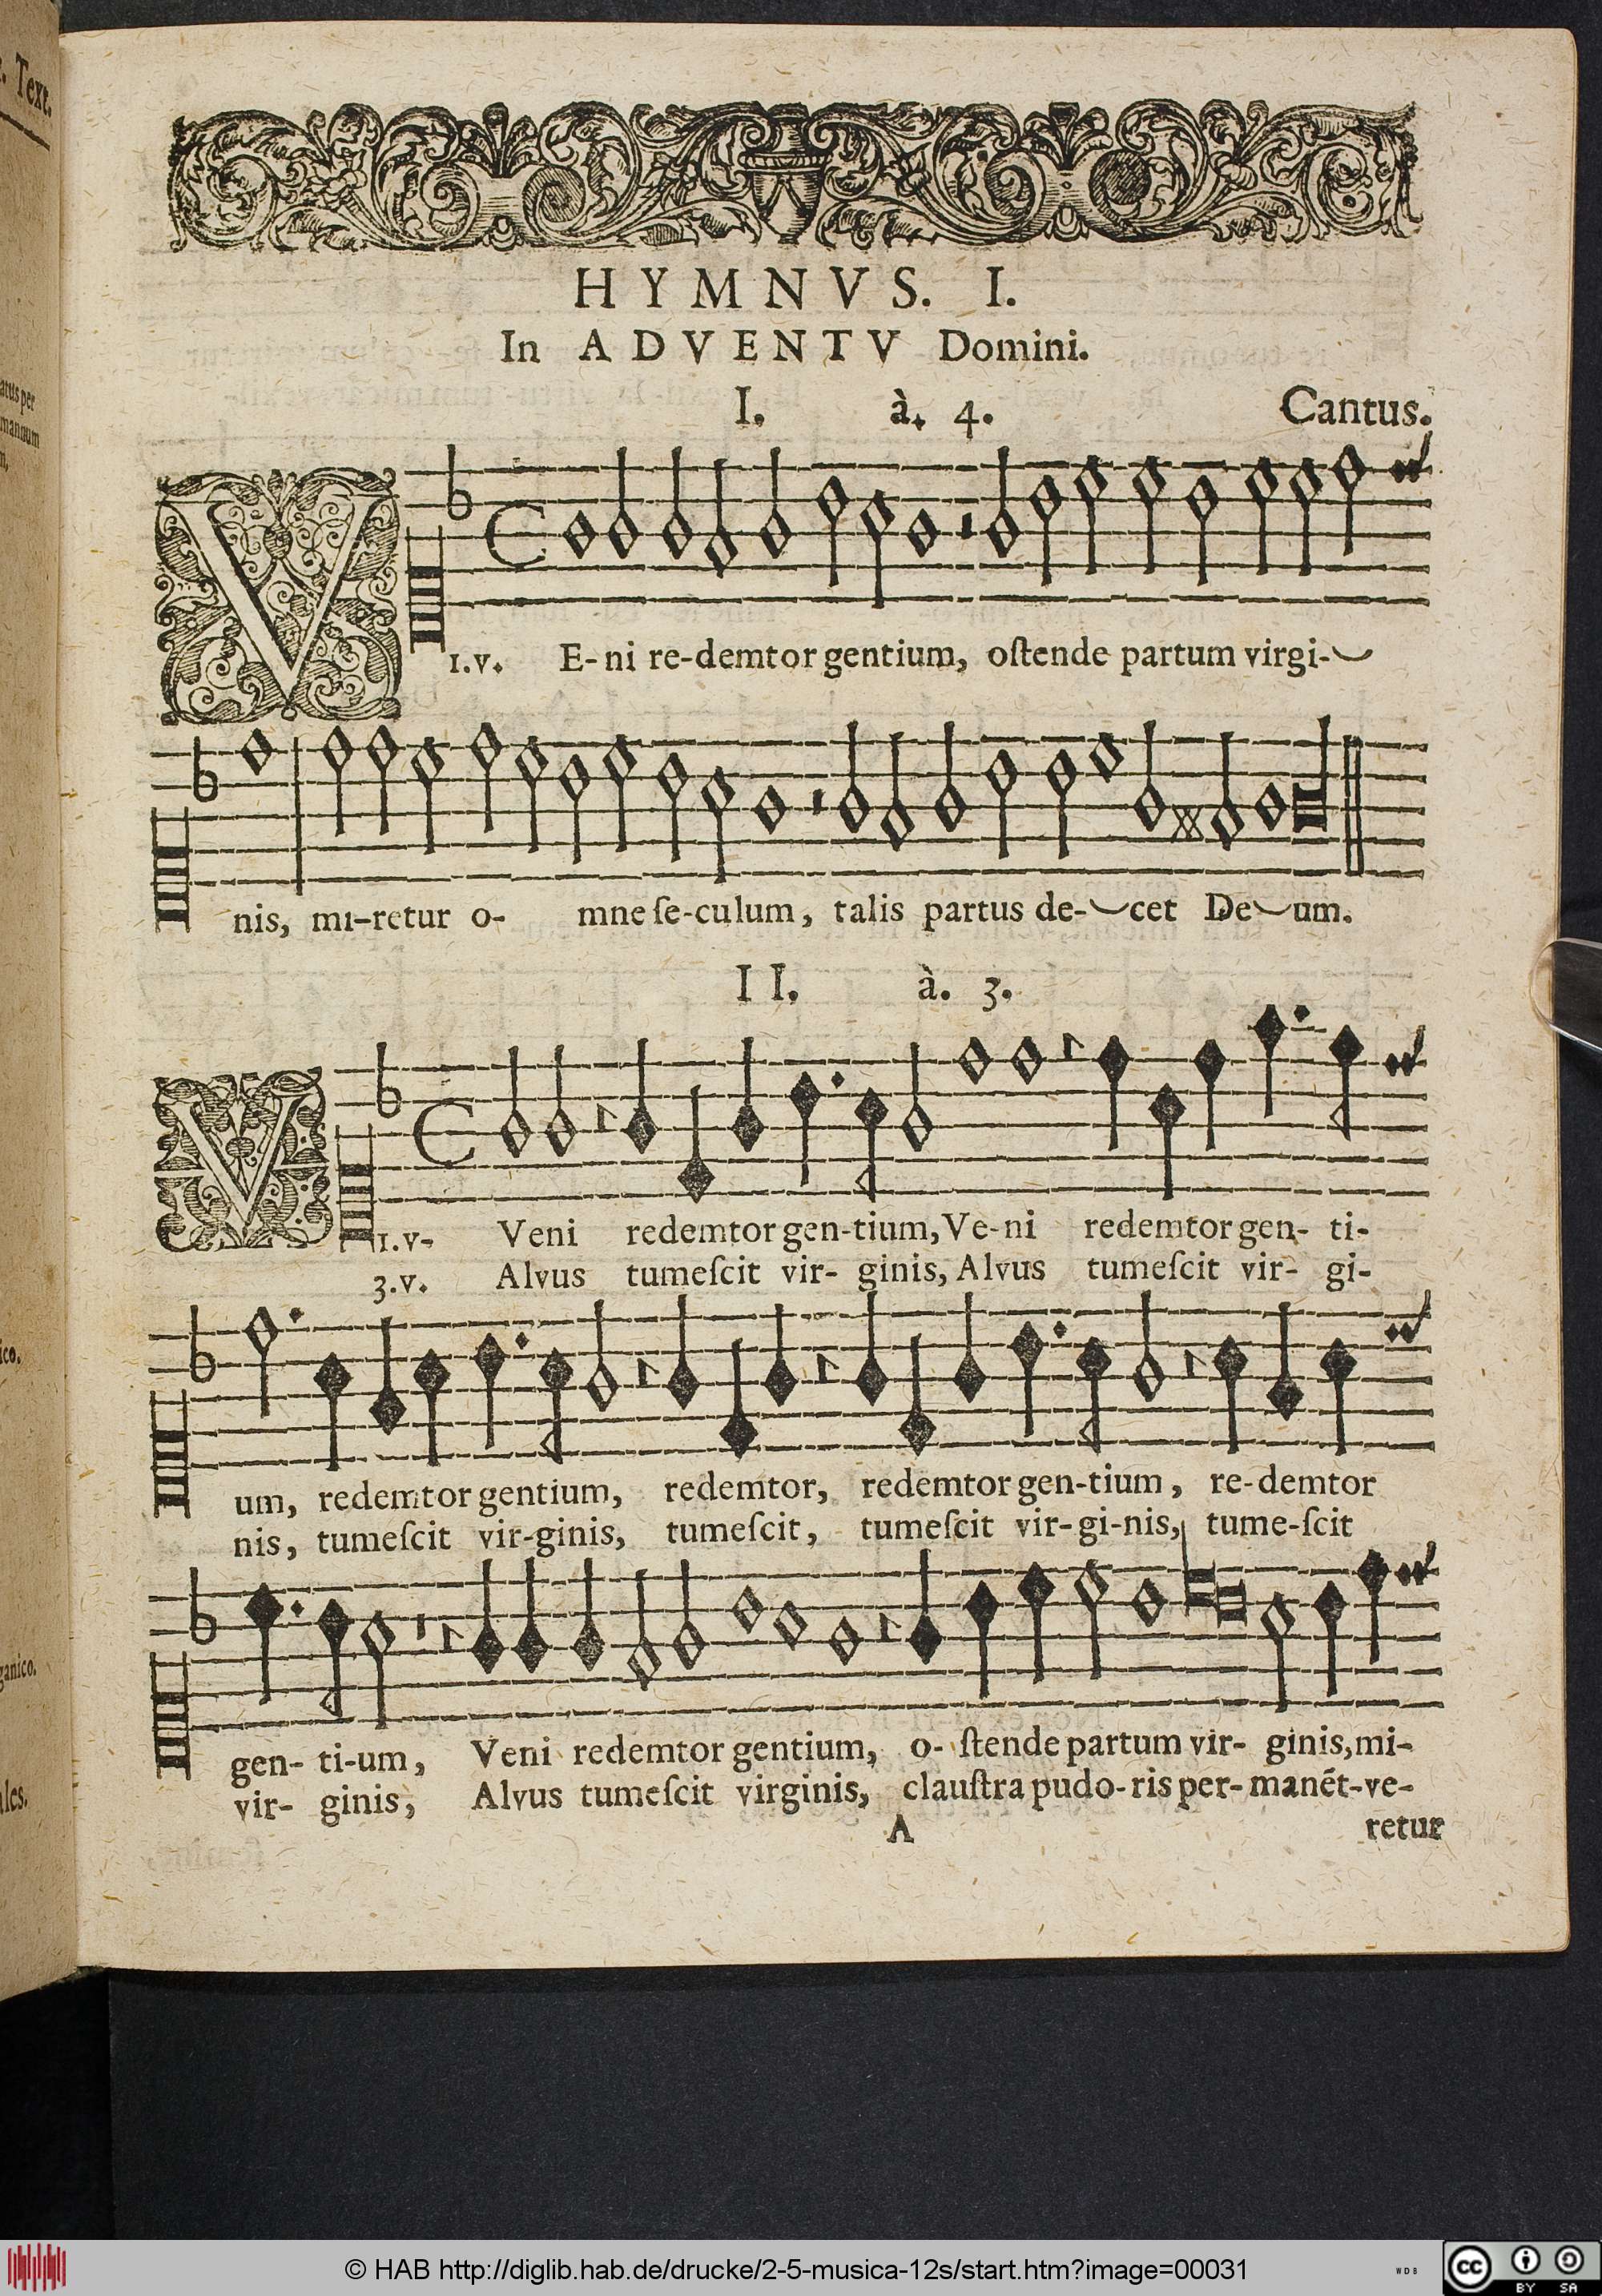 Text.
HYMNVS. I.
In ADVENTV Domini.
I. à. 4. Cantus.
V
1.v. E-ni re-demtor gentium, oſtende partum virgi-
nis, mi-retur o- mne ſe-culum, talis partus de-cet De-um.
II. à. 3.
V
1.v- Veni redemtor gen-tium, Ve-ni redemtor gen- ti-
3.v. Alvus tumeſcit vir- ginis, Alvus tumeſcit vir- gi-
um, redemtor gentium, redemtor, redemtor gen-tium, re-demtor
nis, tumeſcit vir-ginis, tumeſcit, tumeſcit vir-gi-nis, tume-ſcit
gen- ti-um, Veni redemtor gentium, o- ſtende partum vir- ginis, mi-
vir- ginis, Alvus tumeſcit virginis, clauſtra pudo-ris per-manét-ve-
A retur
© HAB http://diglib.hab.de/drucke/2-5-musica-12s/start.htm?image=00031
WDB
cc BY SA